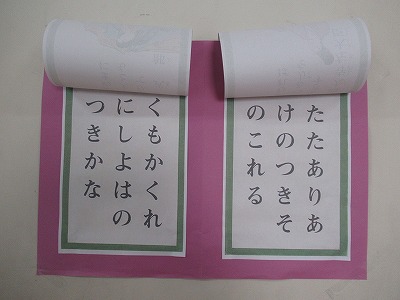 たたありあ
けのつきそ
のこれる
くもかくれ
にしよはの
つきかな